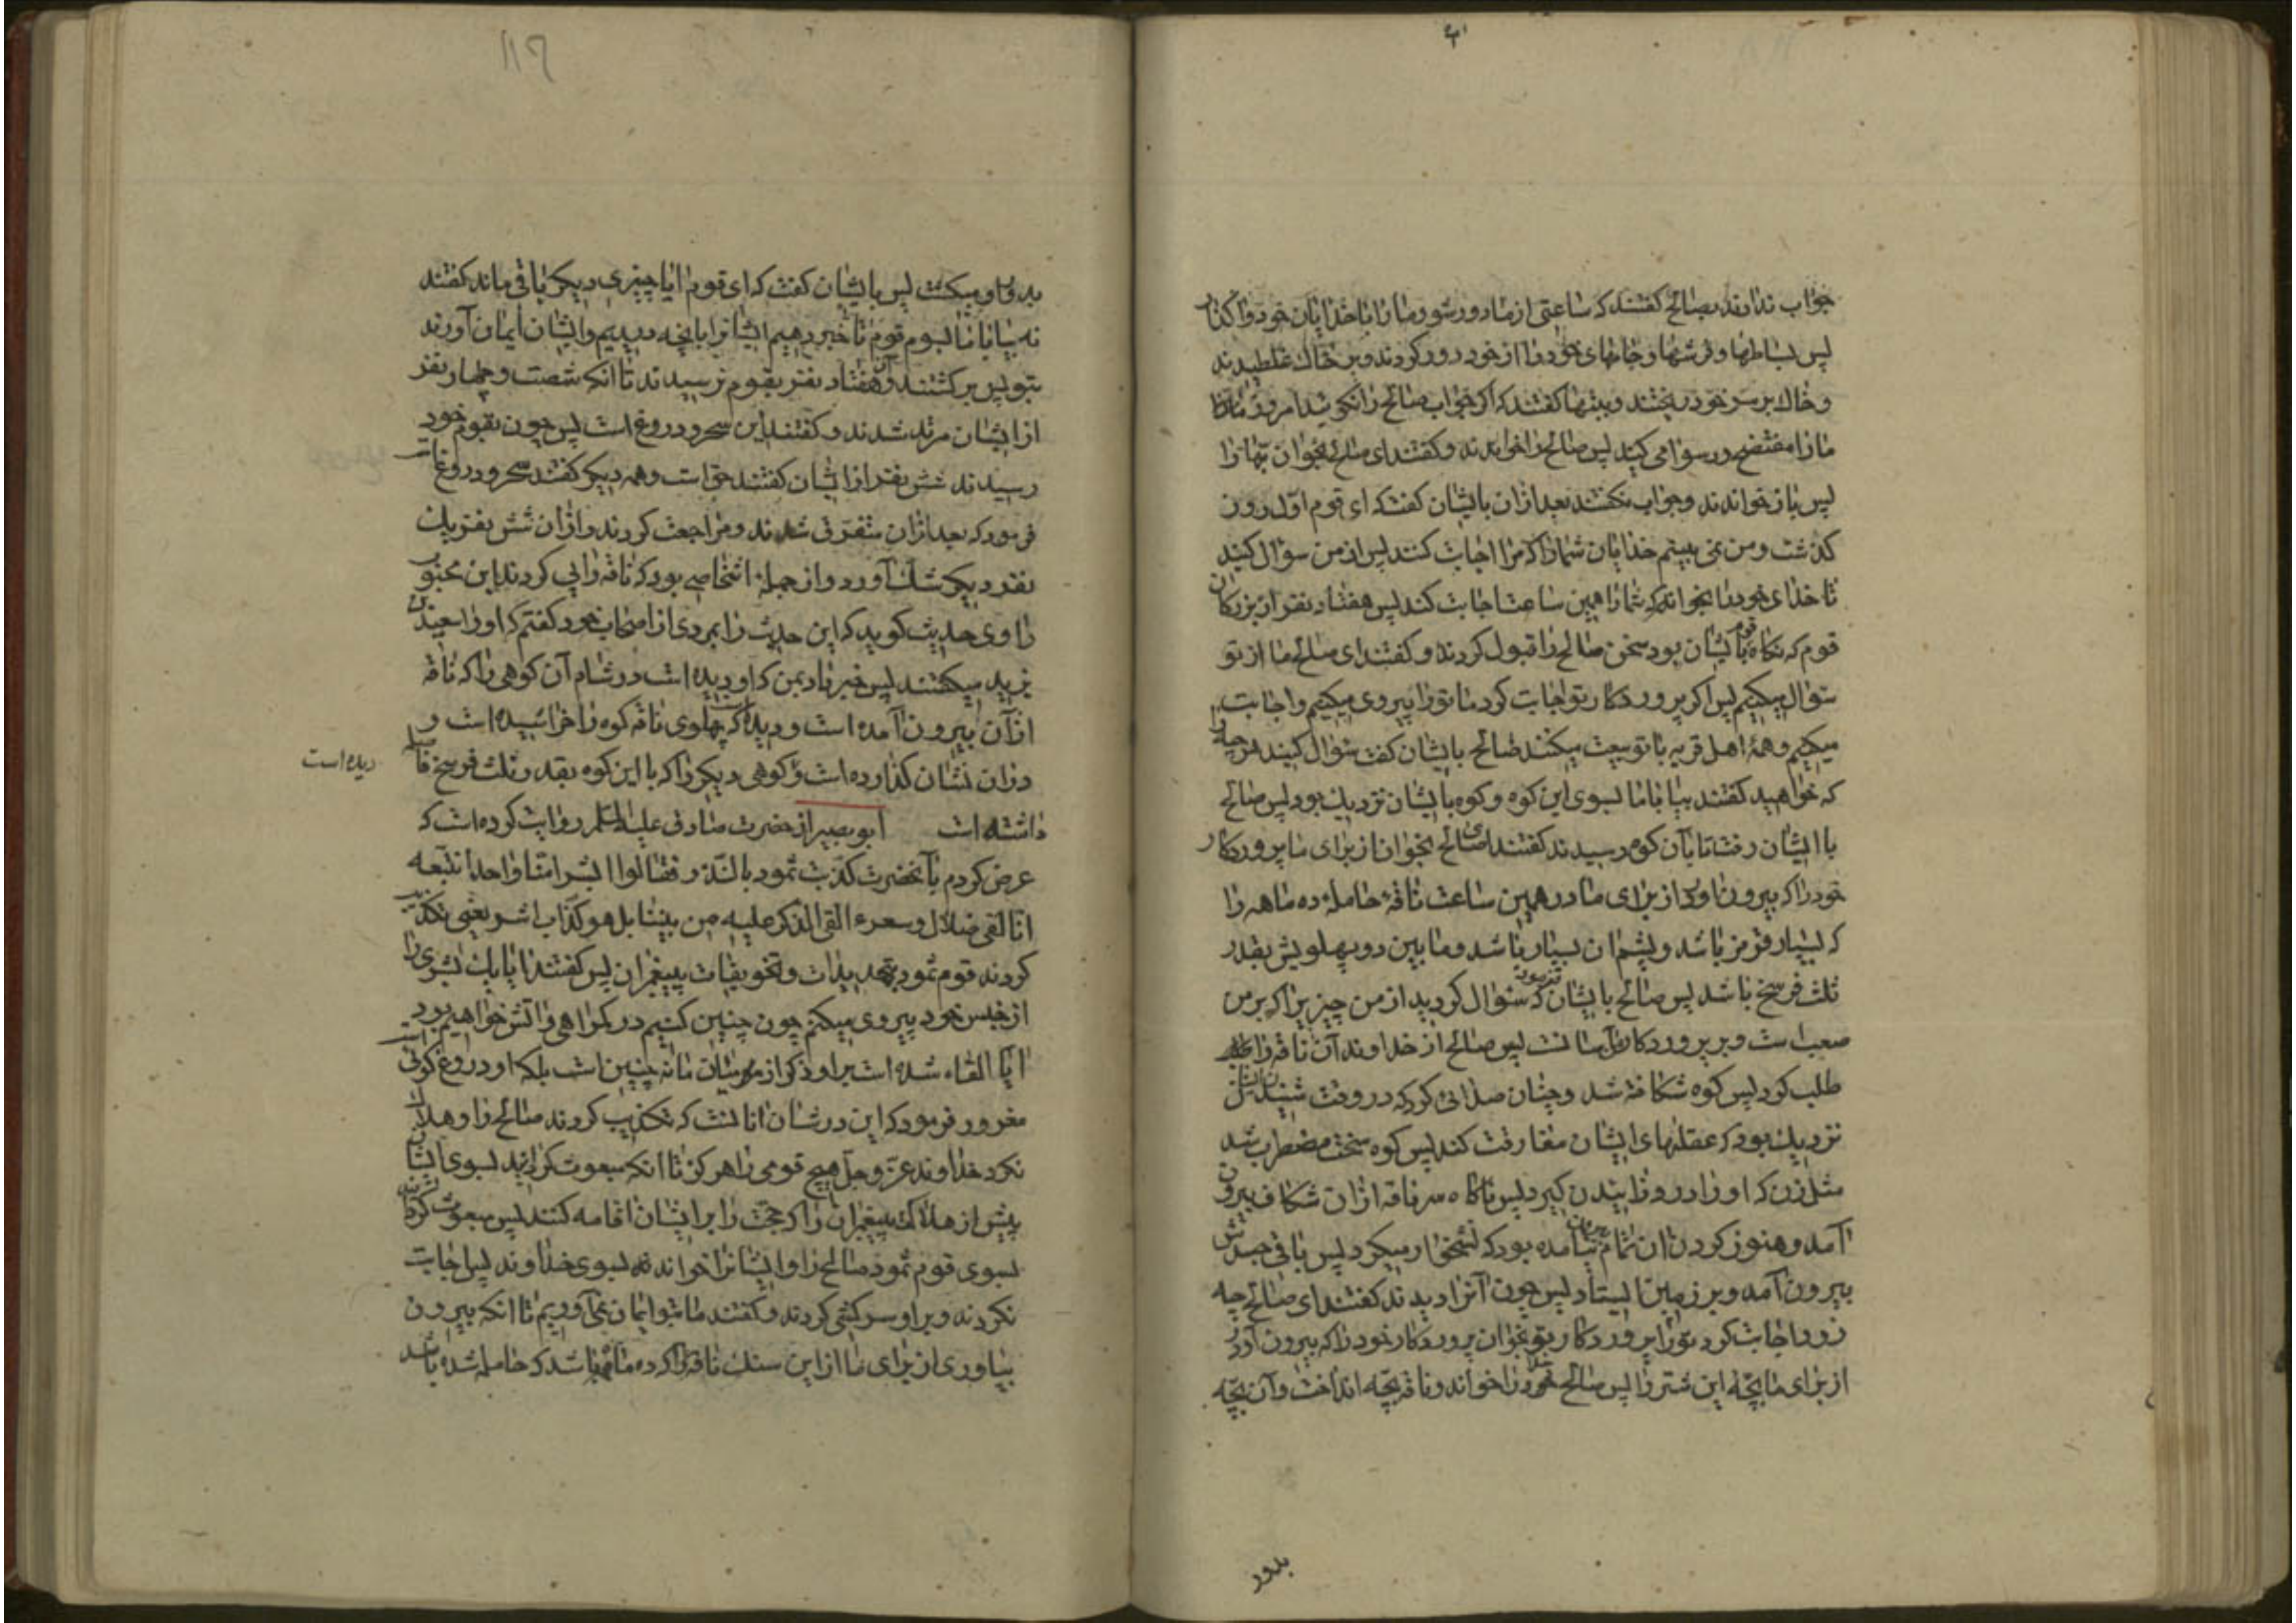 جواب ندادند بصالح گفتند که ساعتی از ما دور شو و ما را با خدایان خود واگذار
پس بساطها و فرشها و جامهای خود را از خود دور کردند و بر خاک غلطیدند
و خاک بر سر خود ریختند و ببتها گفتند که اگر جواب صالح را نگوئید امروز
ما را مفتضح و رسوا می کنید پس صالح را خواندند و گفتند ای صالح بخوان بتها را
پس باز خواند ند و جواب نگفتند بعد از آن بایشان گفت که ای قوم اوّل روز
گذشت و من نمی بینم خدایان شما را که مرا اجابت کنند پس از من سؤال کنید
تا خدای خود را بخوانم که شما را همین ساعت اجابت کند پس هفتاد نفر از بزرگان
قوم که نگاه قوم با ایشان بود سخن صالح را قبول کردند و گفتند ای صالح ما از تو
سؤال میکنیم پس اگر پروردگار تو اجابت کرد ما تو را پیروی میکنیم و اجابت
میکنیم و همهٔ اهل قریه با تو بیعت میکنند صالح بایشان گفت سؤال کنید هر چه را
که خواهید گفتند بیا با ما بسوی این کوه و کوه بایشان نزدیک بود پس صالح
با ایشان رفت تا بآن کوه رسیدند گفتند ای صالح بخوان از برای ما پروردگار
خود را که بیرون آورد از برای ما در همین ساعت ناقهٔ حاملهٔ ده ماهه را
که بسیار قرمز باشد و پشم آن بسیار باشد و مابین دو پهلویش بقدر
ثلث فرسخ باشد پس صالح بایشان فرمود که سؤال کردید از من چیزیرا که بر من
صعب است و بر پروردگارم آسانست پس صالح از خداوند آن ناقه را
طلب کرد پس کوه شکافته شد و چنان صدائی کرد که در وقت شنیدن آن
نزدیک بود که عقلهای ایشان مفارقت کند پس کوه سخت مضطرب شد
مثل زن که او را درد زائیدن گیرد پس ناگاه سر ناقه از آن شکاف بیرون
آمد و هنوز گردن آن تمام بیرون نیامده بود که نشخوار میکرد پس باقی جسدش
بیرون آمد و بر زمین ایستاد پس چون آنرا دیدند گفتند ای صالح چه
زود اجابت کرد تو را پروردگار تو بخوان پروردگار خود را که بیرون آورد
از برای ما بچّهٔ این شتر را پس صالح خدا را خواند و ناقه بچّه انداخت و آن بچّه
بدور
۱۱۹
بدور او میگشت پس بایشان گفت که ای قوم آیا چیزی دیگر باقی ماند گفتند
نه بیا با ما بسوی قوم تا خبر دهیم ایشانرا بانچه دیدیم و ایشان ایمان آورند
بتو پس برگشتند و آن هفتاد نفر بقوم نرسیدند تا انکه شصت و چهار نفر
از ایشان مرتد شدند و گفتند این سحر و دروغ است پس چون بقوم خود
رسیدند شش نفر از ایشان گفتند حق است و همه دیگر گفتند سحر و دروغ است
فرمود که بعد از آن متفرّق شدند و مراجعت کردند و از آن شش نفر یک
نفر دیگر شک آورد و از جملهٔ اشخاصی بود که ناقه را پی کردند ابن محبوب
راوی حدیث گوید که این حدیث را بمردی از اصحاب خود گفتم که او را سعید بن
یزید میگفتند پس خبر داد بمن که او دیده است در شام آن کوهی را که ناقه
از آن بیرون آمده است و دیده است که پهلوی ناقه کوه را خراشیده است و
در آن نشان گذارده است و کوهی دیگر را که با این کوه بقدر ثلث فرسخ فاصله
دیده است
داشته است ابو بصیر از حضرت صادق علیه السلم روایت کرده است که
عرض کردم بآنحضرت کذّبت ثمود بالنّذر فقالوا ابشرا منّا واحدا نتّبعه
انّا لفی ضلال و سعر ء القی الذّکر علیه من بیننا بل هو کذّاب اشر یعنی تکذیب
کردند قوم ثمود بتهدیدات و تخویفات پیغمبران پس گفتند آیا یک بشری را
از جنس خود پیروی میکنیم چون چنین کنیم در گمراهی و آتش خواهیم بود
آیا القاء شده است بر او ذکر از میان ما نه چنین است بلکه او دروغ گوئی است
مغرور فرمود که این در شان آنانست که تکذیب کردند صالح را و هلاک
نکرد خداوند عزّ و جلّ هیچ قومی را هرگز تا آنکه مبعوث گردانید بسوی ایشان
پیش از هلاک پیغمبران را که حجّت را بر ایشان اقامه کنند پس مبعوث گردانید
بسوی قوم ثمود صالح را و ایشانرا خواند بسوی خداوند پس اجابت
نکردند و بر او سرکشی کردند و گفتند ما بتو ایمان نمی آوریم تا انکه بیرون
بیاوری از برای ما از این سنک ناقهٔ را که ده ماهه باشد که حامله شده باشد